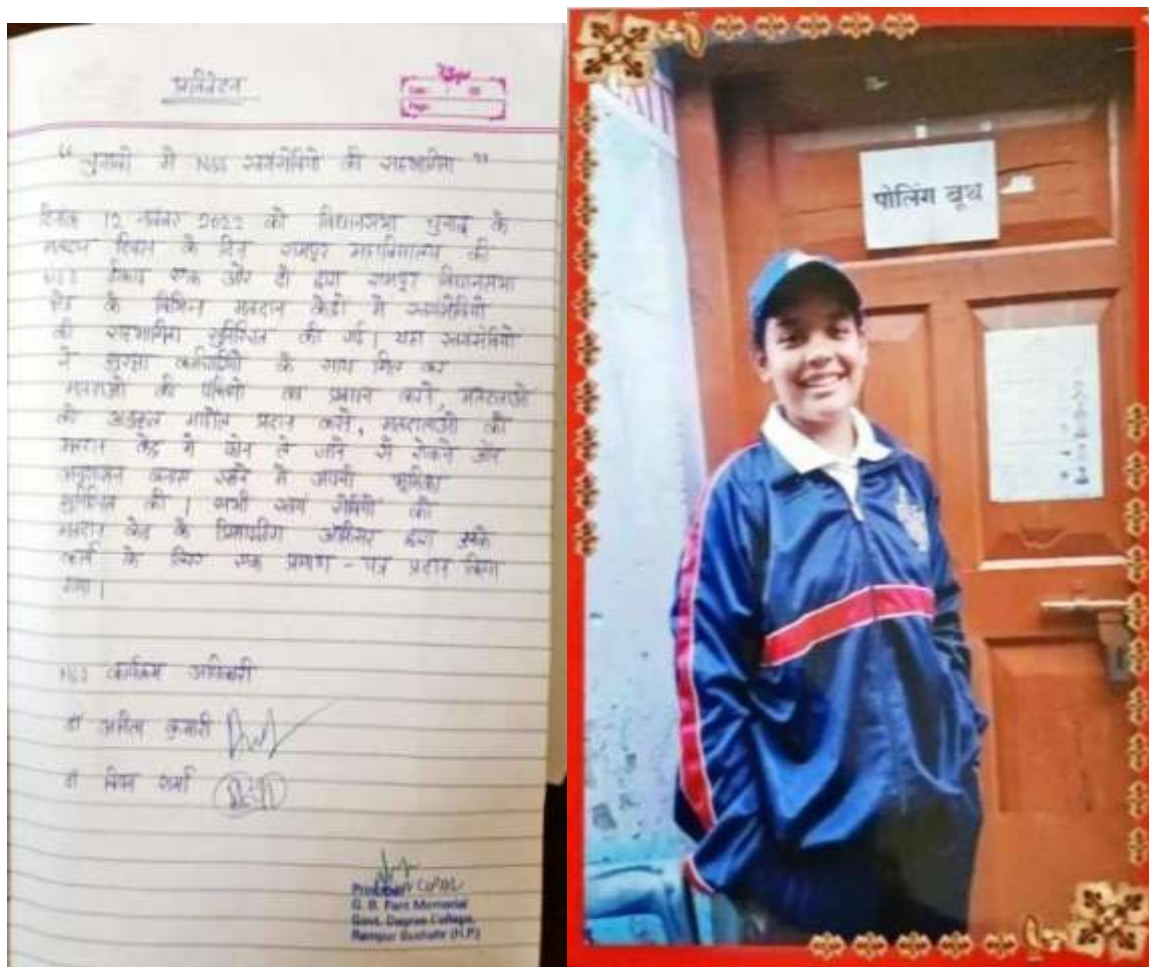 प्रतिवेदन
Date
Page
" चुनावों में NSS स्वयंसेवियों की सहभागिता "
दिनांक 12 नवंबर 2022 को विधानसभा चुनाव के
मतदान दिवस के दिन रामपुर महाविद्यालय की
NSS इकाई एक और दो द्वारा रामपुर विधानसभा
क्षेत्र के विभिन्न मतदान केंद्रों में स्वयंसेवियों
की सहभागिता सुनिश्चित की गई। यहां स्वयंसेवियों
ने सुरक्षा कर्मचारियों के साथ मिल कर
मतदाताओं की पंक्तियों का प्रबंधन करने, मतदाताओं
को अनुकूल माहौल प्रदान करने, मतदाताओं को
मतदान केंद्र में फोन ले जाने से रोकने और
अनुशासन बनाए रखने में अपनी भूमिका
सुनिश्चित की। सभी स्वयं सेवियों को
मतदान केंद्र के प्रिजाइडिंग ऑफिसर द्वारा उनके
कार्य के लिए एक प्रमाण - पत्र प्रदान किया
गया।
NSS कार्यक्रम अधिकारी
डॉ अनिता कुमारी
डॉ शर्मा
Principal
G. B. Pant Memorial
Govt. Degree College,
Rampur Bushahr (H.P.)
पोलिंग बूथ